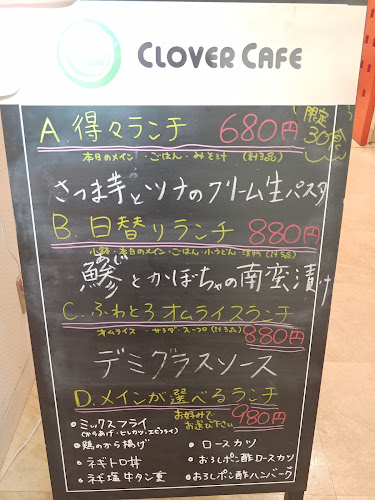 CLOVER CAFE
A. 得々ランチ 680円
限定
30食
本日のメイン・ごはん・みそ汁 (計3品)
さつま芋とツナのクリーム生パスタ
B. 日替りランチ 880円
小鉢・本日のメイン・ごはん・小うどん・漬物 (計5品)
あじ
鯵とかぼちゃの南蛮漬け
C. ふわとろオムライスランチ
オムライス・サラダ・スープ (計3品) 880円
デミグラスソース
D. メインが選べるランチ
お好みで
お選び下さい 980円
・ミックスフライ
(からあげ・ヒレカツ・エビフライ)
・鶏のから揚げ
・ネギトロ丼
・ネギ塩牛タン重
・ロースカツ
・おろしポン酢ロースカツ
・おろしポン酢ハンバーグ